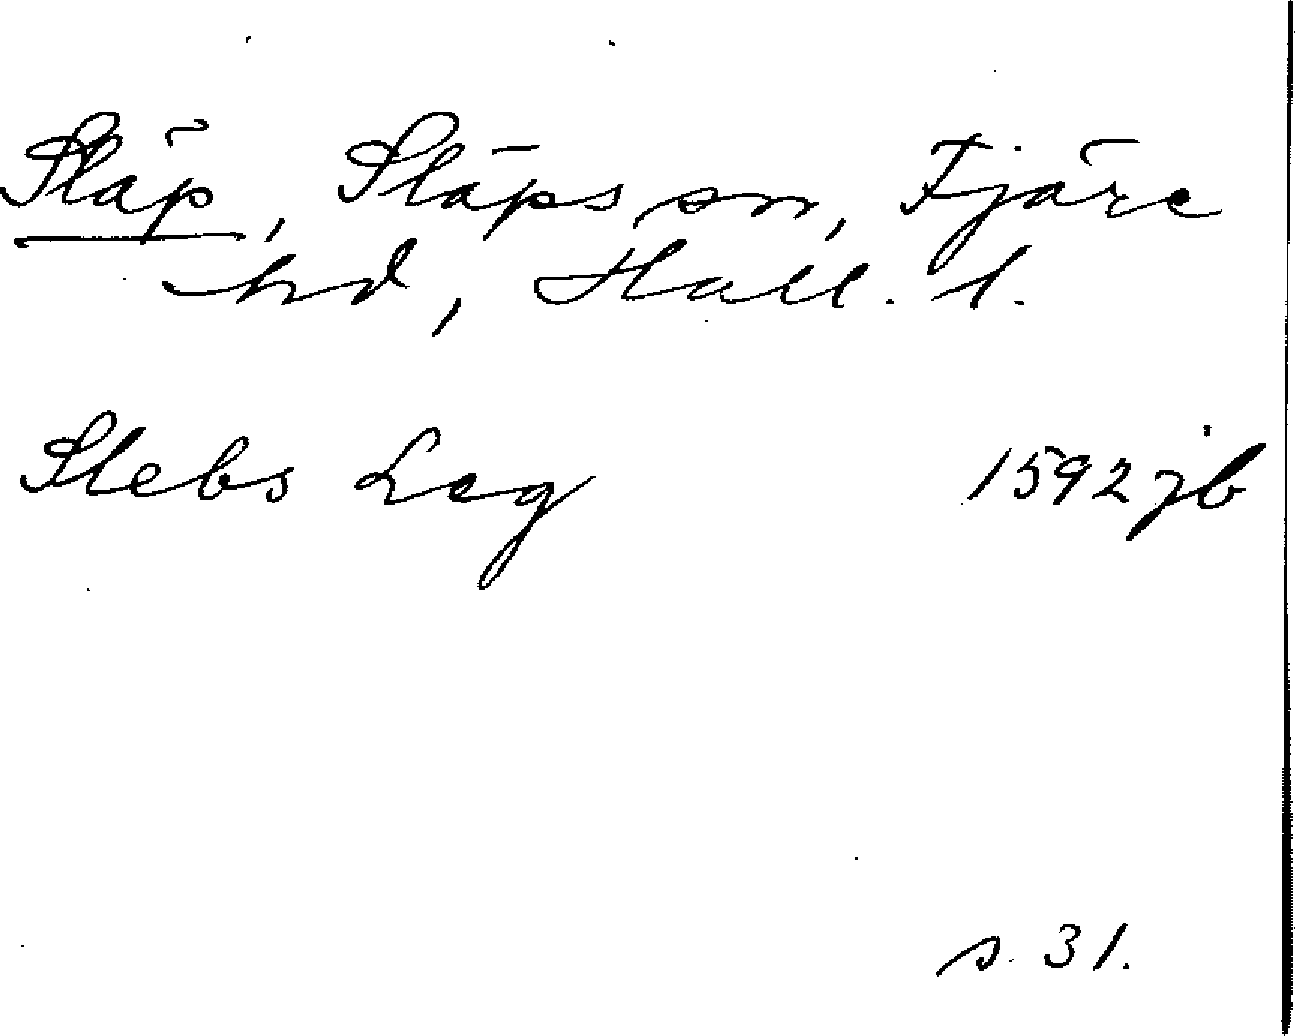 Släp, Släps sn, Fjäre
hd, Hall. l.
Slebs Leg 1592 jb
s. 31.